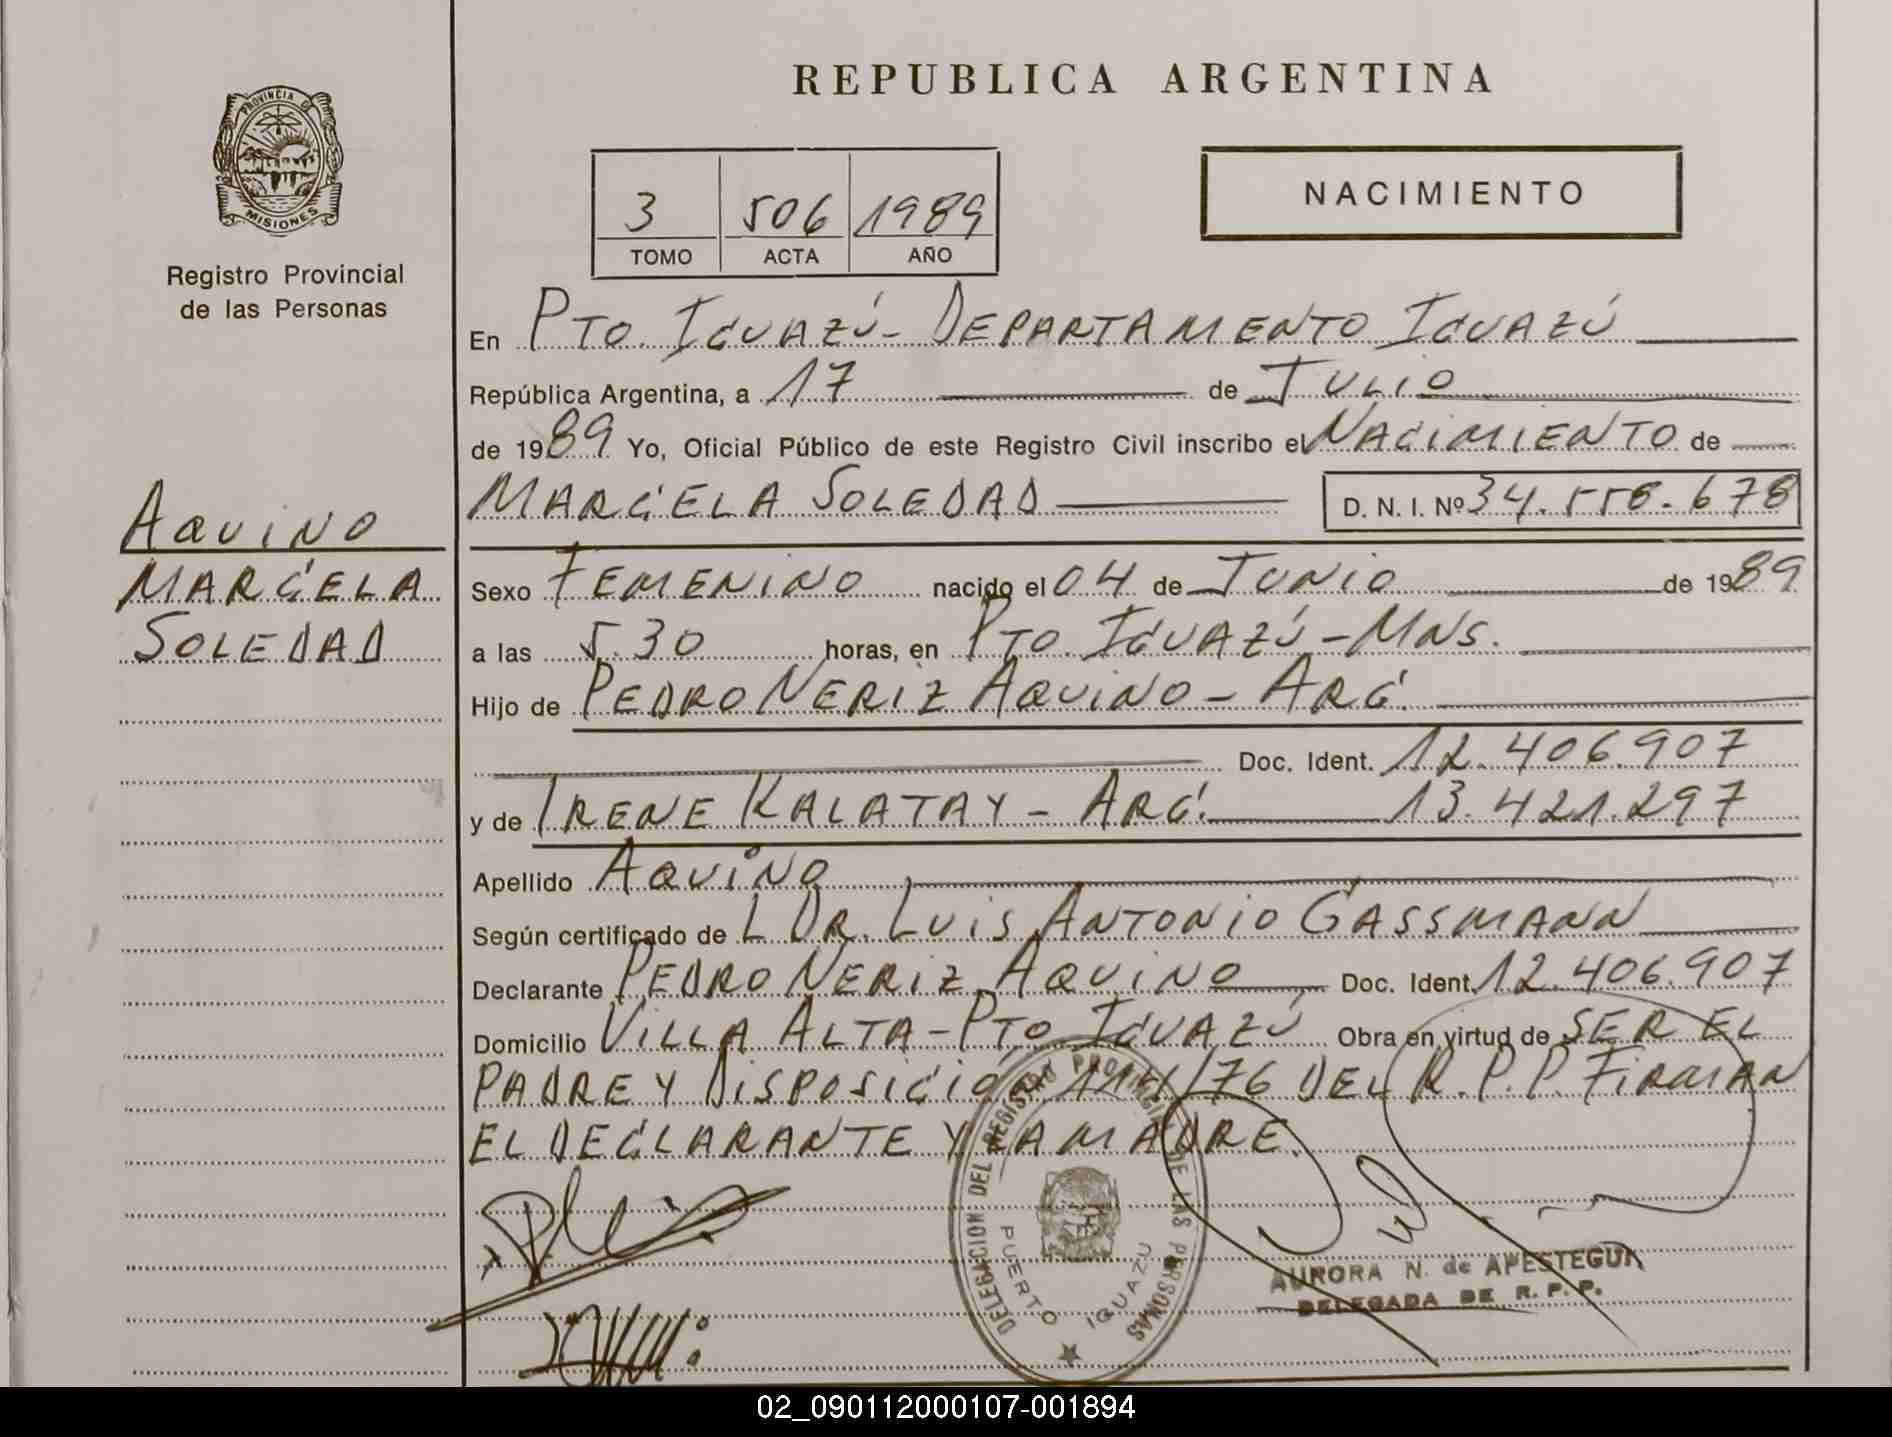 REPUBLICA ARGENTINA
PROVINCIA DE
MISIONES
Registro Provincial
de las Personas
3 506 1989
TOMO ACTA AÑO
NACIMIENTO
En PTO. IGUAZÚ - DEPARTAMENTO IGUAZÚ
República Argentina, a 17 de JULIO
de 1989 Yo, Oficial Público de este Registro Civil inscribo el NACIMIENTO de
MARCELA SOLEDAD D. N. I. Nº 34.558.678
AQUINO
MARCELA
SOLEDAD
Sexo FEMENINO nacido el 04 de JUNIO de 1989
a las 5.30 horas, en PTO. IGUAZÚ - MNS.
Hijo de PEDRO NERIZ AQUINO - ARG.
Doc. Ident. 12.406.907
y de IRENE KALATAY - ARG. 13.421.297
Apellido AQUINO
Según certificado de L DR. LUIS ANTONIO GASSMANN
Declarante PEDRO NERIZ AQUINO Doc. Ident. 12.406.907
Domicilio VILLA ALTA - PTO. IGUAZÚ Obra en virtud de SER EL
PADRE Y DISPOSICIÓN /76 DEL R.P.P. FIRMAN
EL DECLARANTE Y LA MADRE.
DELEGACION DEL REGISTRO PROVINCIAL DE LAS PERSONAS
PUERTO IGUAZU
AURORA N. de APESTEGUI
DELEGADA DE R. P. P.
02_090112000107-001894